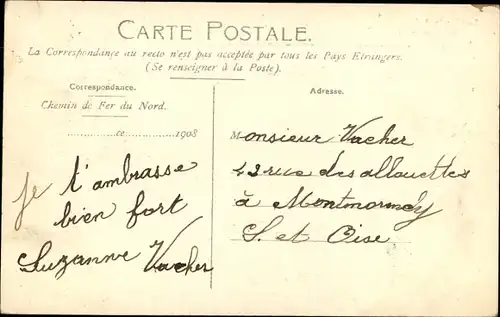 CARTE POSTALE.
La Correspondance au recto n'est pas acceptée par tous les Pays Etrangers.
(Se renseigner à la Poste).
Correspondance.
Chemin de Fer du Nord.
ce 1908
je t'ambrasse
bien fort
Suzanne Vacher
Adresse.
Monsieur Vacher
43 rue des allouettes
à Montmorncy
S. et Oise